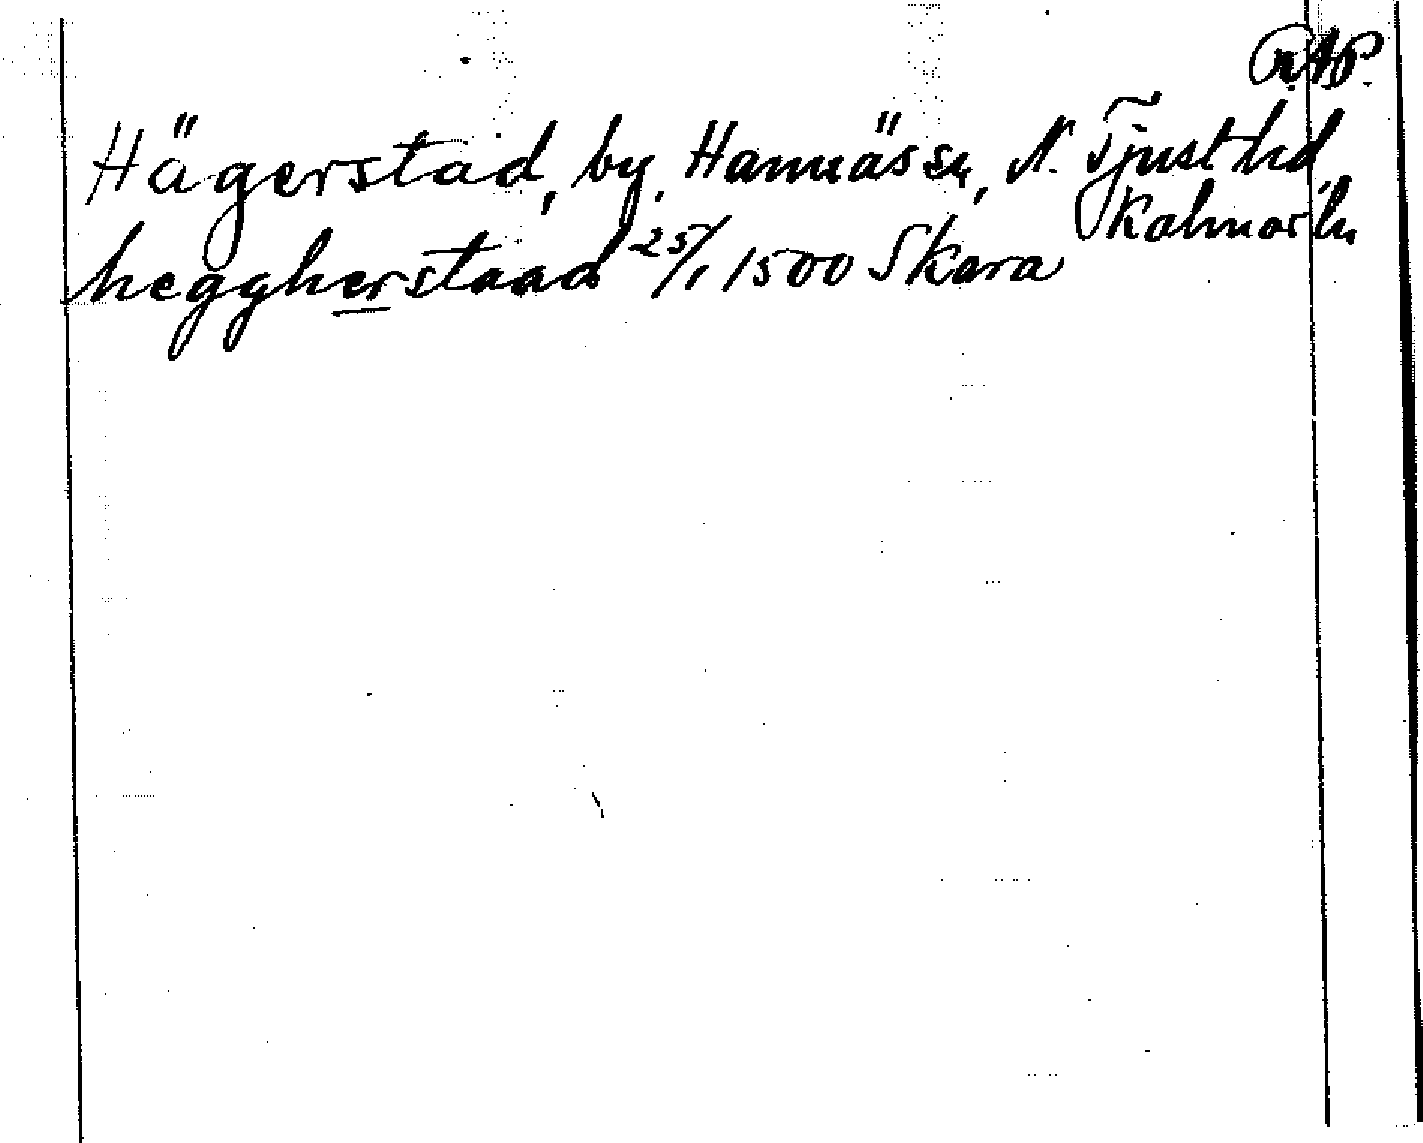 RAP.
Hägerstad, by, Hannäs sn, N. Tjust hd,
Kalmar ln
heggherstaad 25/1 1500 Skara